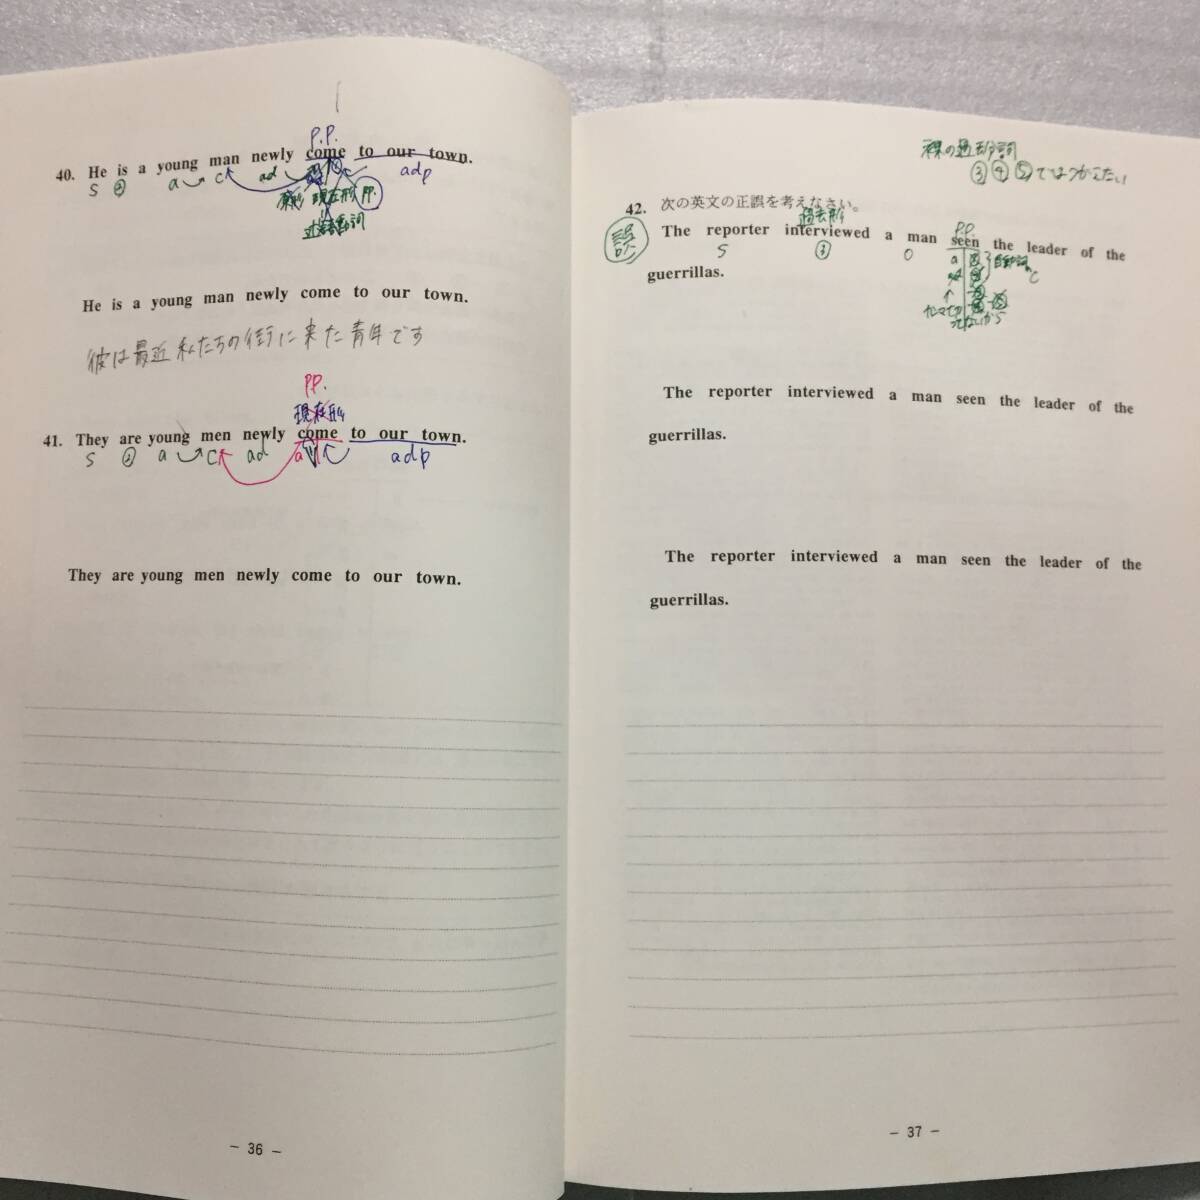 P.P.
40. He is a young man newly come to our town.
S ② a C ad a adp
原形 現在形 P.P.
過去分詞
He is a young man newly come to our town.
彼は最近 私たちの街に来た青年です
P.P.
現在形
41. They are young men newly come to our town.
S ② a C ad a adp
They are young men newly come to our town.
- 36 -
裸の過去分詞
③ ④ ⑤ ではつかえない
42. 次の英文の正誤を考えなさい。
誤
過去形 P.P.
The reporter interviewed a man seen the leader of the
S ③ O a
guerrillas.
The reporter interviewed a man seen the leader of the
guerrillas.
The reporter interviewed a man seen the leader of the
guerrillas.
- 37 -